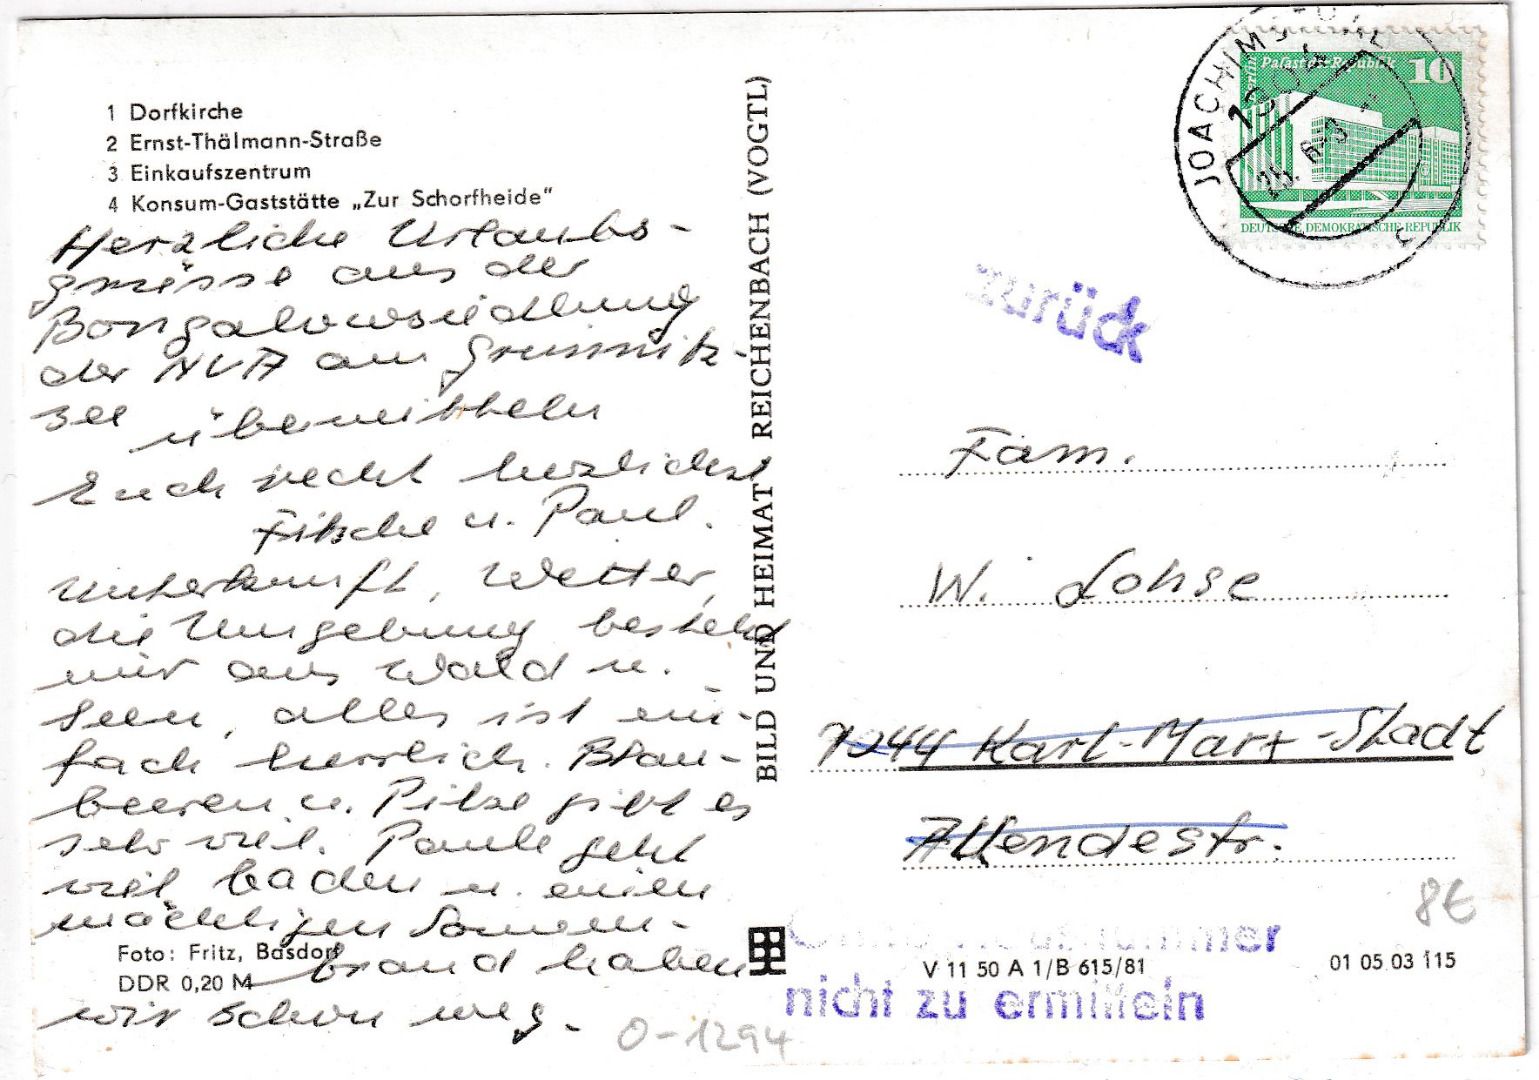 1 Dorfkirche
2 Ernst-Thälmann-Straße
3 Einkaufszentrum
4 Konsum-Gaststätte „Zur Schorfheide"
Herzliche Urlaubs-
grüsse aus der
Bongalowsiedlung
der NVA am Grimnitz-
see übermitteln
Euch recht herzlichst
u. Paul.
Unterkunft, Wetter,
die Umgebung besteht
nur aus Wald u.
Seen, alles ist ein-
fach herrlich. Blau-
beeren u. Pilze gibt es
sehr viel. Paule geht
viel baden u. einen
mächtigen Sonnen-
brand haben
wir schon weg.
Foto: Fritz, Basdorf
DDR 0,20 M
O-1294
BILD UND HEIMAT REICHENBACH (VOGTL)
JOACHIMSTHAL
1304
25. 6-8
Berlin Palast der Republik 10
DEUTSCHE DEMOKRATISCHE REPUBLIK
zurück
Fam.
W. Lohse
9044 Karl-Marx-Stadt
Allendestr.
8€
Ohne Hausnummer
nicht zu ermitteln
V 11 50 A 1/B 615/81
01 05 03 115